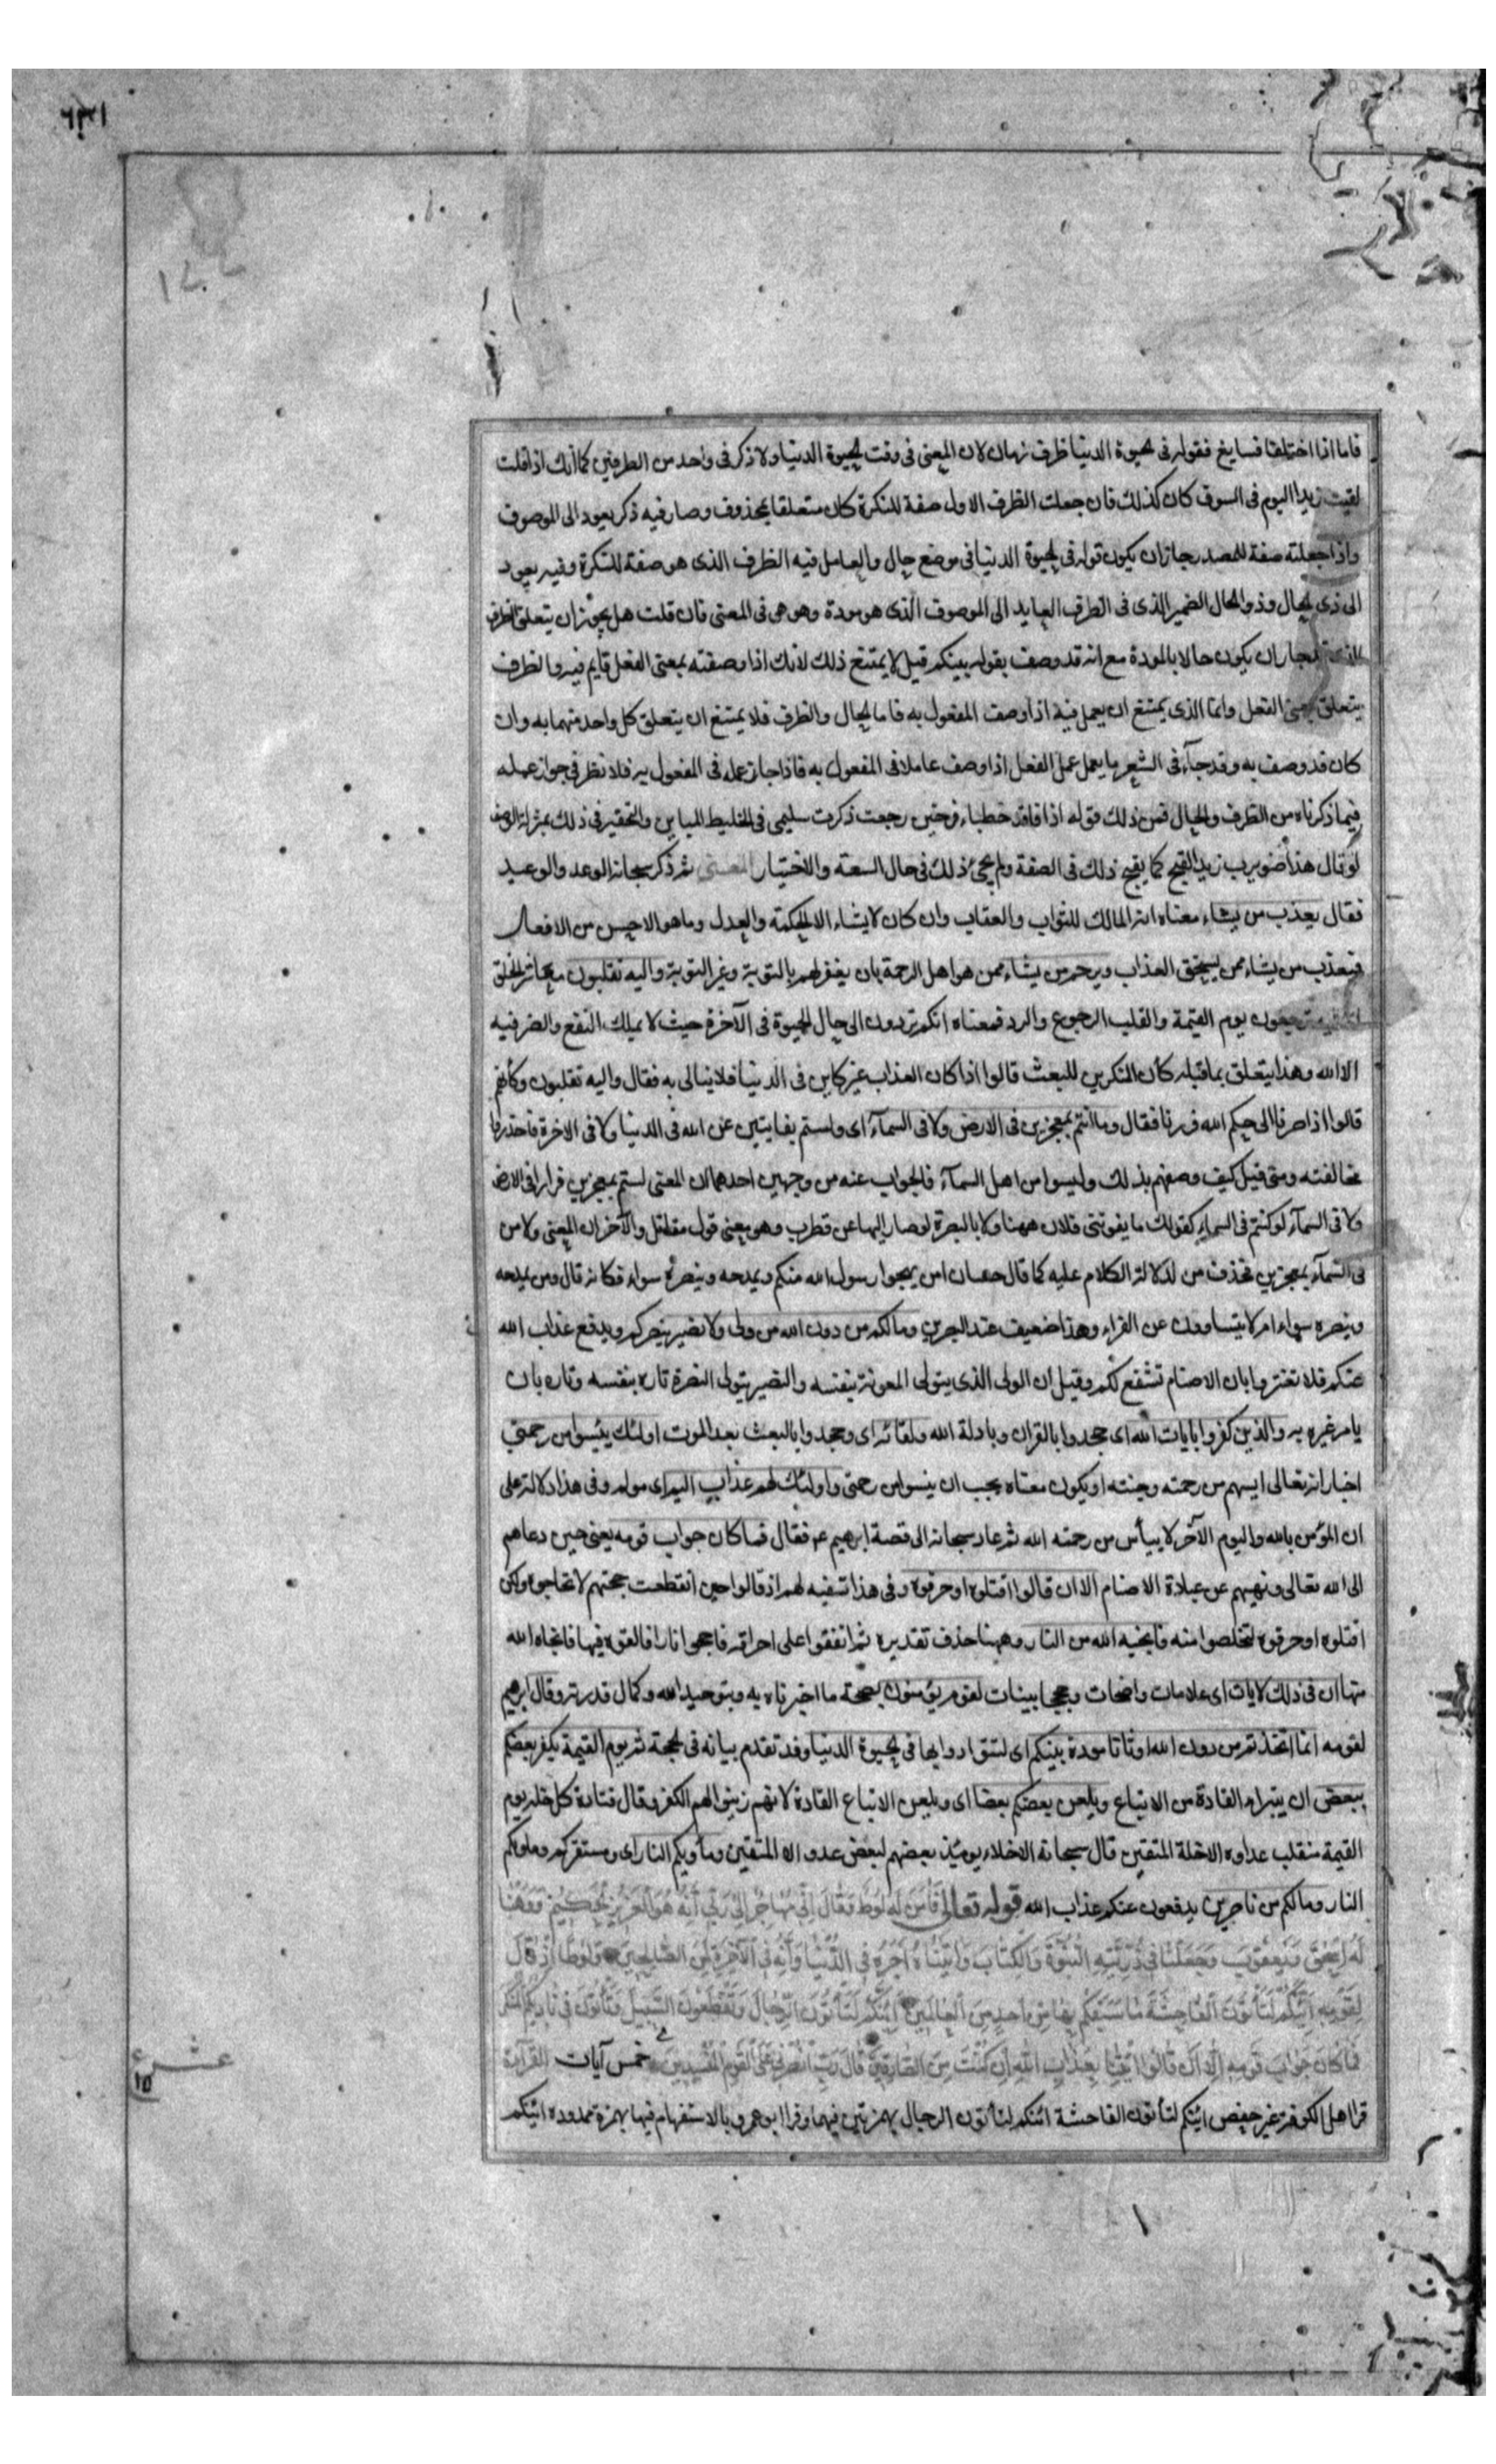 فاما اذا اختلفا فسايغ فقوله فى الحيوة الدنيا ظرف زمان لان المعنى فى وقت الحيوة الدنيا ولا ذكر فى واحد من الظرفين كما أنك اذا قلت
لقيت زيدا اليوم فى السوق كان كذلك فان جعلت الظرف الاول صفة للنكرة كان متعلقا بمحذوف وصار فيه ذكر يعود الى الموصوف
واذا جعلته صفة للمصدر جاز ان يكون قوله فى الحيوة الدنيا فى موضع حال والعامل فيه الظرف الذى هو صفة للنكرة وفيه يعود
الى ذى الحال وذو الحال الضمير الذى فى الظرف العايد الى الموصوف الذى هو مودة وهو هى فى المعنى فان قلت هل يجوز ان يتعلق الظرف
الذى جاز ان يكون حالا بالمودة مع انه قد وصف بقوله بينكم قيل لا يمتنع ذلك لانك اذا وصفته بمعنى الفعل قايم فيه والظرف
يتعلق بمعنى الفعل وانما الذى يمتنع ان يعمل فيه اذا وصف المفعول به فاما الحال والظرف فلا يمتنع ان يتعلق كل واحد منهما به وان
كان قد وصف به وقد جآء فى الشعر ما يعمل عمل الفعل اذا وصف عاملا فى المفعول به فاذا جاز عمله فى المفعول به فلا نظر فى جواز عمله
فيما ذكرناه من الظرف والحال فمن ذلك قوله اذا فاقد خطباء فرخين رجعت ذكرت سليمى فى الخليط المباين والتحقير فى ذلك بمنزلة الوصف
لو قال هذا ضويرب زيد القبح كما يقبح ذلك فى الصفة ولم يجئ ذلك فى حال السعة والاختيار المعنى ثم ذكر سبحانه الوعد والوعيد
فقال يعذب من يشاء معناه انه المالك للثواب والعقاب وان كان لا يشاء الا الحكمة والعدل وما هو الاحسن من الافعال
فيعذب من يشاء ممن يستحق العذاب ويرحم من يشاء ممن هو اهل الرحمة بان يغفر لهم بالتوبة وغير التوبة واليه تقلبون معاشر الخلق
ترجعون يوم القيمة والقلب الرجوع والرد فمعناه انكم تردون الى حال الحيوة فى الآخرة حيث لا يملك النفع والضر فيه
الا الله وهذا يتعلق بما قبله كأن المنكرين للبعث قالوا اذا كان العذاب غير كاين فى الدنيا فلا نبالى به فقال واليه تقلبون وكأنهم
قالوا اذا صرنا الى حكم الله فررنا فقال وما انتم بمعجزين فى الارض ولا فى السمآء اى ولستم بفايتين عن الله فى الدنيا ولا فى الاخرة فاحذروا
مخالفته ومتى قيل كيف وصفهم بذلك وليسوا من اهل السمآء فالجواب عنه من وجهين احدهما ان المعنى لستم بمعجزين فرارا فى الارض
ولا فى السمآء لو كنتم فى السماء كقولك ما يفوتنى فلان ههنا ولا بالبصرة لو صار اليها عن قطرب وهو معنى قول مقاتل والآخر ان المعنى ولا من
فى السمآء بمعجزين فحذف من لدلالة الكلام عليه كما قال حسان امن يهجوا رسول الله منكم ويمدحه وينصره سواء فكانه قال ومن يمدحه
وينصره سواء ام لا يتساوون عن الفراء وهذا ضعيف عند البصريين وما لكم من دون الله من ولى ولا نصير ينصركم ويدفع عذاب الله
عنكم فلا تغتروا بان الاصنام تشفع لكم وقيل ان الولى الذى يتولى المعونة بنفسه والنصير يتولى النصرة تارة بنفسه وتاره بان
يامر غيره به والذين كفروا بايات الله اى جحدوا بالقران وبادلة الله ولقائه اى وجحدوا بالبعث بعد الموت اولئك يئسوا من رحمتى
اخبار انه تعالى ايسهم من رحمته وجنته او يكون معناه يجب ان ييئسوا من رحمتى واولئك لهم عذاب اليم اى مولم وفى هذا دلالة على
ان المؤمن بالله واليوم الآخر لا ييأس من رحمة الله ثم عاد سبحانه الى قصة ابرهيم ع فقال فما كان جواب قومه يعنى حين دعاهم
الى الله تعالى ونهيهم عن عبادة الاصنام الا ان قالوا اقتلوه او حرقوه وفى هذا تسفيه لهم اذ قالوا حين انقطعت حجتهم لا تحاجوه ولكن
اقتلوه او حرقوه لتخلصوا منه فانجيه الله من النار وههنا حذف تقديره ثم اتفقوا على احراقه فاججوا نارا فالقوه فيها فانجاه الله
منها ان فى ذلك لايات اى علامات واضحات وحججا بينات لقوم يؤمنون بصحة ما اخبرناه به وبتوحيد الله وكمال قدرته وقال ابرهيم
لقومه انما اتخذتم من دون الله اوثانا مودة بينكم اى لتتوادوا بها فى الحيوة الدنيا وقد تقدم بيانه فى الحجة ثم يوم القيمة يكفر بعضكم
ببعض ان يتبراء القادة من الاتباع ويلعن بعضكم بعضا اى ويلعن الاتباع القادة لانهم زينوا لهم الكفر وقال قتادة كل خلة يوم
القيمة منقلب عداوه الا خلة المتقين قال سبحانه الاخلاء يومئذ بعضهم لبعض عدو الا المتقين ومأويكم النار اى ومستقركم وماويكم
النار وما لكم من ناصرين يدفعون عنكم عذاب الله قوله تعالى فَآمَنَ لَهُ لُوطٌ وَقَالَ اِنِّى مُهَاجِرٌ اِلَى رَبِّى اِنَّهُ هُوَ الْعَزِيزُ الْحَكِيمُ وَوَهَبْنَا
لَهُ اِسْحٰقَ وَيَعْقُوبَ وَجَعَلْنَا فِى ذُرِّيَّتِهِ النُّبُوَّةَ وَالْكِتَابَ وَآتَيْنَاهُ اَجْرَهُ فِى الدُّنْيَا وَاِنَّهُ فِى الْآخِرَةِ لَمِنَ الصَّالِحِينَ وَلُوطًا اِذْ قَالَ
لِقَوْمِهِ اِنَّكُمْ لَتَأْتُونَ الْفَاحِشَةَ مَا سَبَقَكُمْ بِهَا مِنْ اَحَدٍ مِنَ الْعَالَمِينَ اَئِنَّكُمْ لَتَأْتُونَ الرِّجَالَ وَتَقْطَعُونَ السَّبِيلَ وَتَأْتُونَ فِى نَادِيكُمُ الْمُنْكَرَ
فَمَا كَانَ جَوَابَ قَوْمِهِ اِلَّا اَنْ قَالُوا ائْتِنَا بِعَذَابِ اللّٰهِ اِنْ كُنْتَ مِنَ الصَّادِقِينَ قَالَ رَبِّ انْصُرْنِى عَلَى الْقَوْمِ الْمُفْسِدِينَ خمس آيات القرآءة
قرا اهل الكوفة غير حفص ائنكم لتأتون الفاحشة ائنكم لتأتون الرجال بهمزتين فيهما وقرا ابو عمرو بالاستفهام فيها بهمزة ممدوده ائنكم